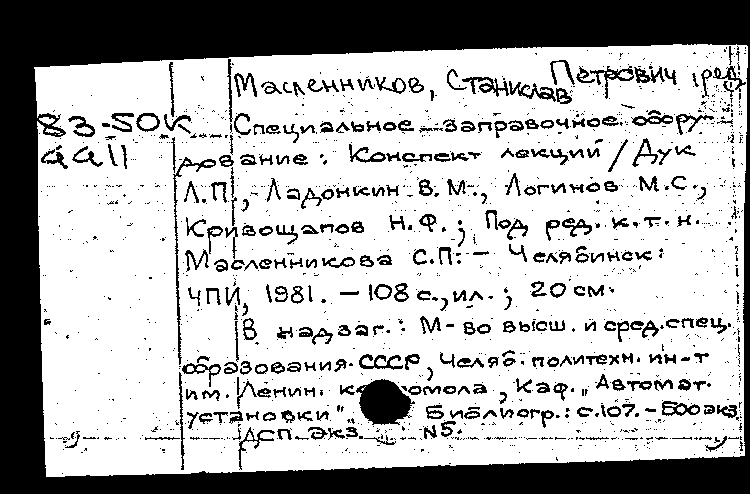 Масленников, Станислав Петрович, ред.
83-50К
4411
Специальное заправочное обору-
дование: Конспект лекций / Дук
Л.П., Ладонкин В.М., Логинов М.С.,
Кривощапов Н.Ф.; Под ред. к.т.н.
Масленникова С.П. - Челябинск:
ЧПИ, 1981. - 108 с., ил.; 20 см.
В надзаг.: М-во высш. и сред. спец.
образования СССР, Челяб. политехн. ин-т
им. Ленин. комсомола, Каф. „Автомат.
установки". Библиогр.: с.107. - 500 экз
ДСП. экз. N5.